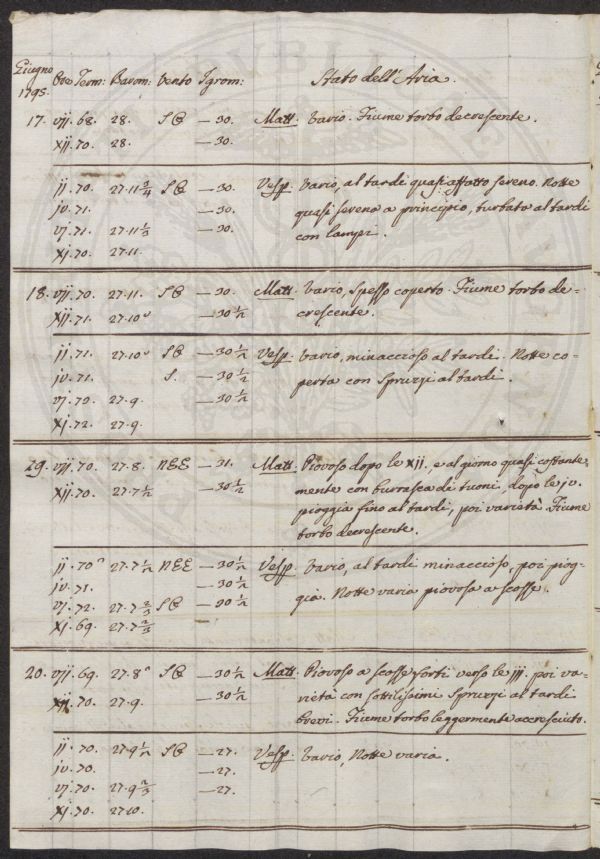 Giugno 1795. Ore Term: Barom: Vento Igrom: Stato dell'Aria.
17. vij. 68. 28. SE — 30. Matt. Vario. Fiume torbo decrescente.
xij. 70. 28. — 30.
ij. 70. 27.11 3/4 SE — 30. Vesp. Vario, al tardi quasi affatto sereno. Notte
iv. 71. — 30. quasi serena a principio, turbata al tardi
vj. 71. 27.11 1/3 — 30. con lampi.
xj. 70. 27.11.
18. vij. 70. 27.11. SE — 30. Matt. Vario, spesso coperto. Fiume torbo de-
xij. 71. 27.10 — 30 1/2 crescente.
ij. 71. 27.10 SE — 30 1/2 Vesp. Vario, minaccioso al tardi. Notte co-
iv. 71. S. — 30 1/2 perta con spruzzi al tardi.
vj. 70. 27.9. — 30 1/2
xj. 72. 27.9.
29. vij. 70. 27.8. NEE — 31. Matt. Piovoso dopo le xij., e al giorno quasi costante-
xij. 70. 27.7 1/2 — 30 1/2 mente con burrasca di tuoni, dopo le iv.
pioggia fino al tardi, poi varietà. Fiume
torbo decrescente.
ij. 70 27.7 1/2 NEE — 30 1/2 Vesp. Vario, al tardi minaccioso, poi piog-
iv. 71. — 30 1/2 gia. Notte varia piovosa a scosse.
vj. 72. 27.7 2/3 SE — 20 1/2
xj. 69. 27.7 2/3
20. vij. 69. 27.8 SE — 30 1/2 Matt. Piovoso a scosse forti verso le iij. poi va-
xij. 70. 27.9. — 30 1/2 rietà con sottilissimi spruzzi al tardi
brevi. Fiume torbo leggermente accresciuto.
ij. 70. 27.9 1/2 SE — 27. Vesp. Vario, Notte varia.
iv. 70. — 27.
vj. 70. 27.9 2/3 — 27.
xj. 70. 27.10.